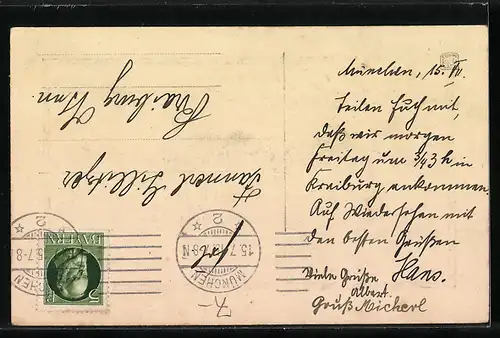 München, 15. VII.
teilen Euch mit,
daß wir morgen
Freitag um 3/4 3 h in
Kraiburg ankommen.
Auf Wiedersehen mit
den besten Grüßen
Hans.
Viele Grüße
Albert.
Gruß Micherl
Kraiburg Inn.
MÜNCHEN
15.7
7-8 N
* 2 *
BAYERN
MÜNCHEN
7-8
2 *
7-